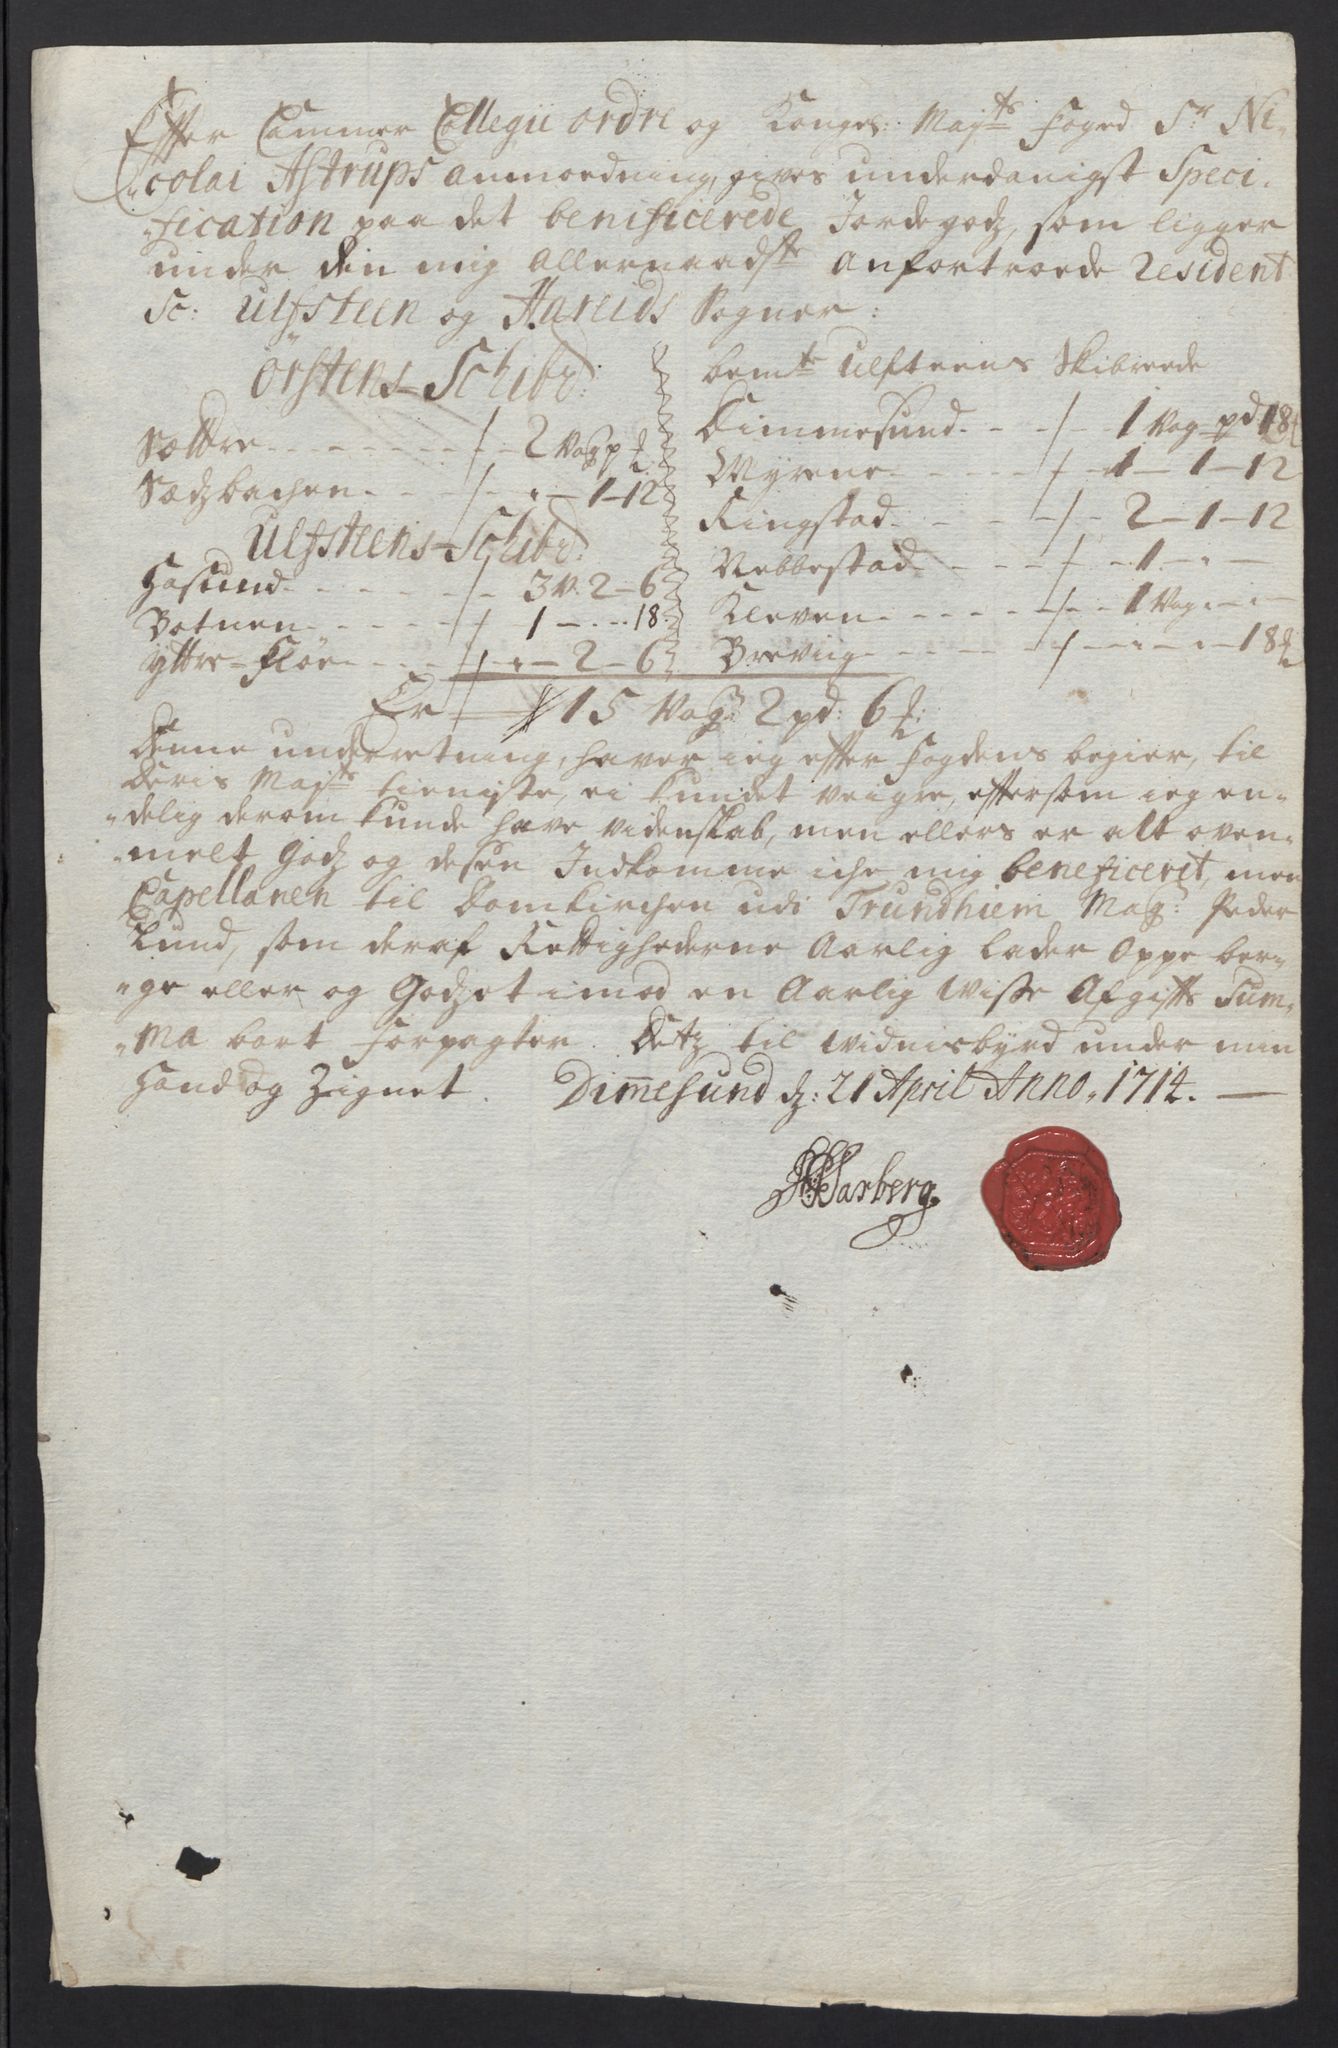 Effter Cammer Collegii ordre og Konges: Majts Foged Sr Ni-
colai Astrups anmoedning, gives underdanigst Speci-
fication paa det benificerede Jordegodz, som ligger
under den mig allernaadste anfortroede Resident
Sc: Ulfsteen og Hareids Sogner:
Örstens Schibrd:
Sættre - - - 2 Vog p
Sædzbachen - - - 1-12
Ulfsteens Schibrd:
Hasund - - - 3 V. 2-6
Botnen - - - 1 - .. 18
yttre-Flöe - - - 2-6
bemte Ulfsteens Skibrede
Dimmesund - - - 1 Vog - pd 18
Myrene - - - 1-1-12
Ringstad - - - 2-1-12
Nebbestad - - - 1 - -
Kleven - - - 1 Vog - -
Breviig - - - 18
Er 15 Vog: 2 pd: 6
Denne underretning, haver ieg effter Fogdens begier, til
Deris Majts tieniste, ei kundet veigre, eftersom ieg en-
delig derom kunde have videnskab, men ellers er alt oven-
melt Godz og desen Indkomme iche mig beneficeret, men
Capellanen til Domkirchen udi Trundhiem Mag: Peder
Lund, som deraf Rettighederne Aarlig lader Oppe ber-
ge eller og Godzet imod en Aarlig Wisse Afgiffts Sum-
ma bort Forpagter. Detz til Widnisbyrd under min
Hand og Zignet. Dimesund d: 21 April Anno 1714.
Sarberg.